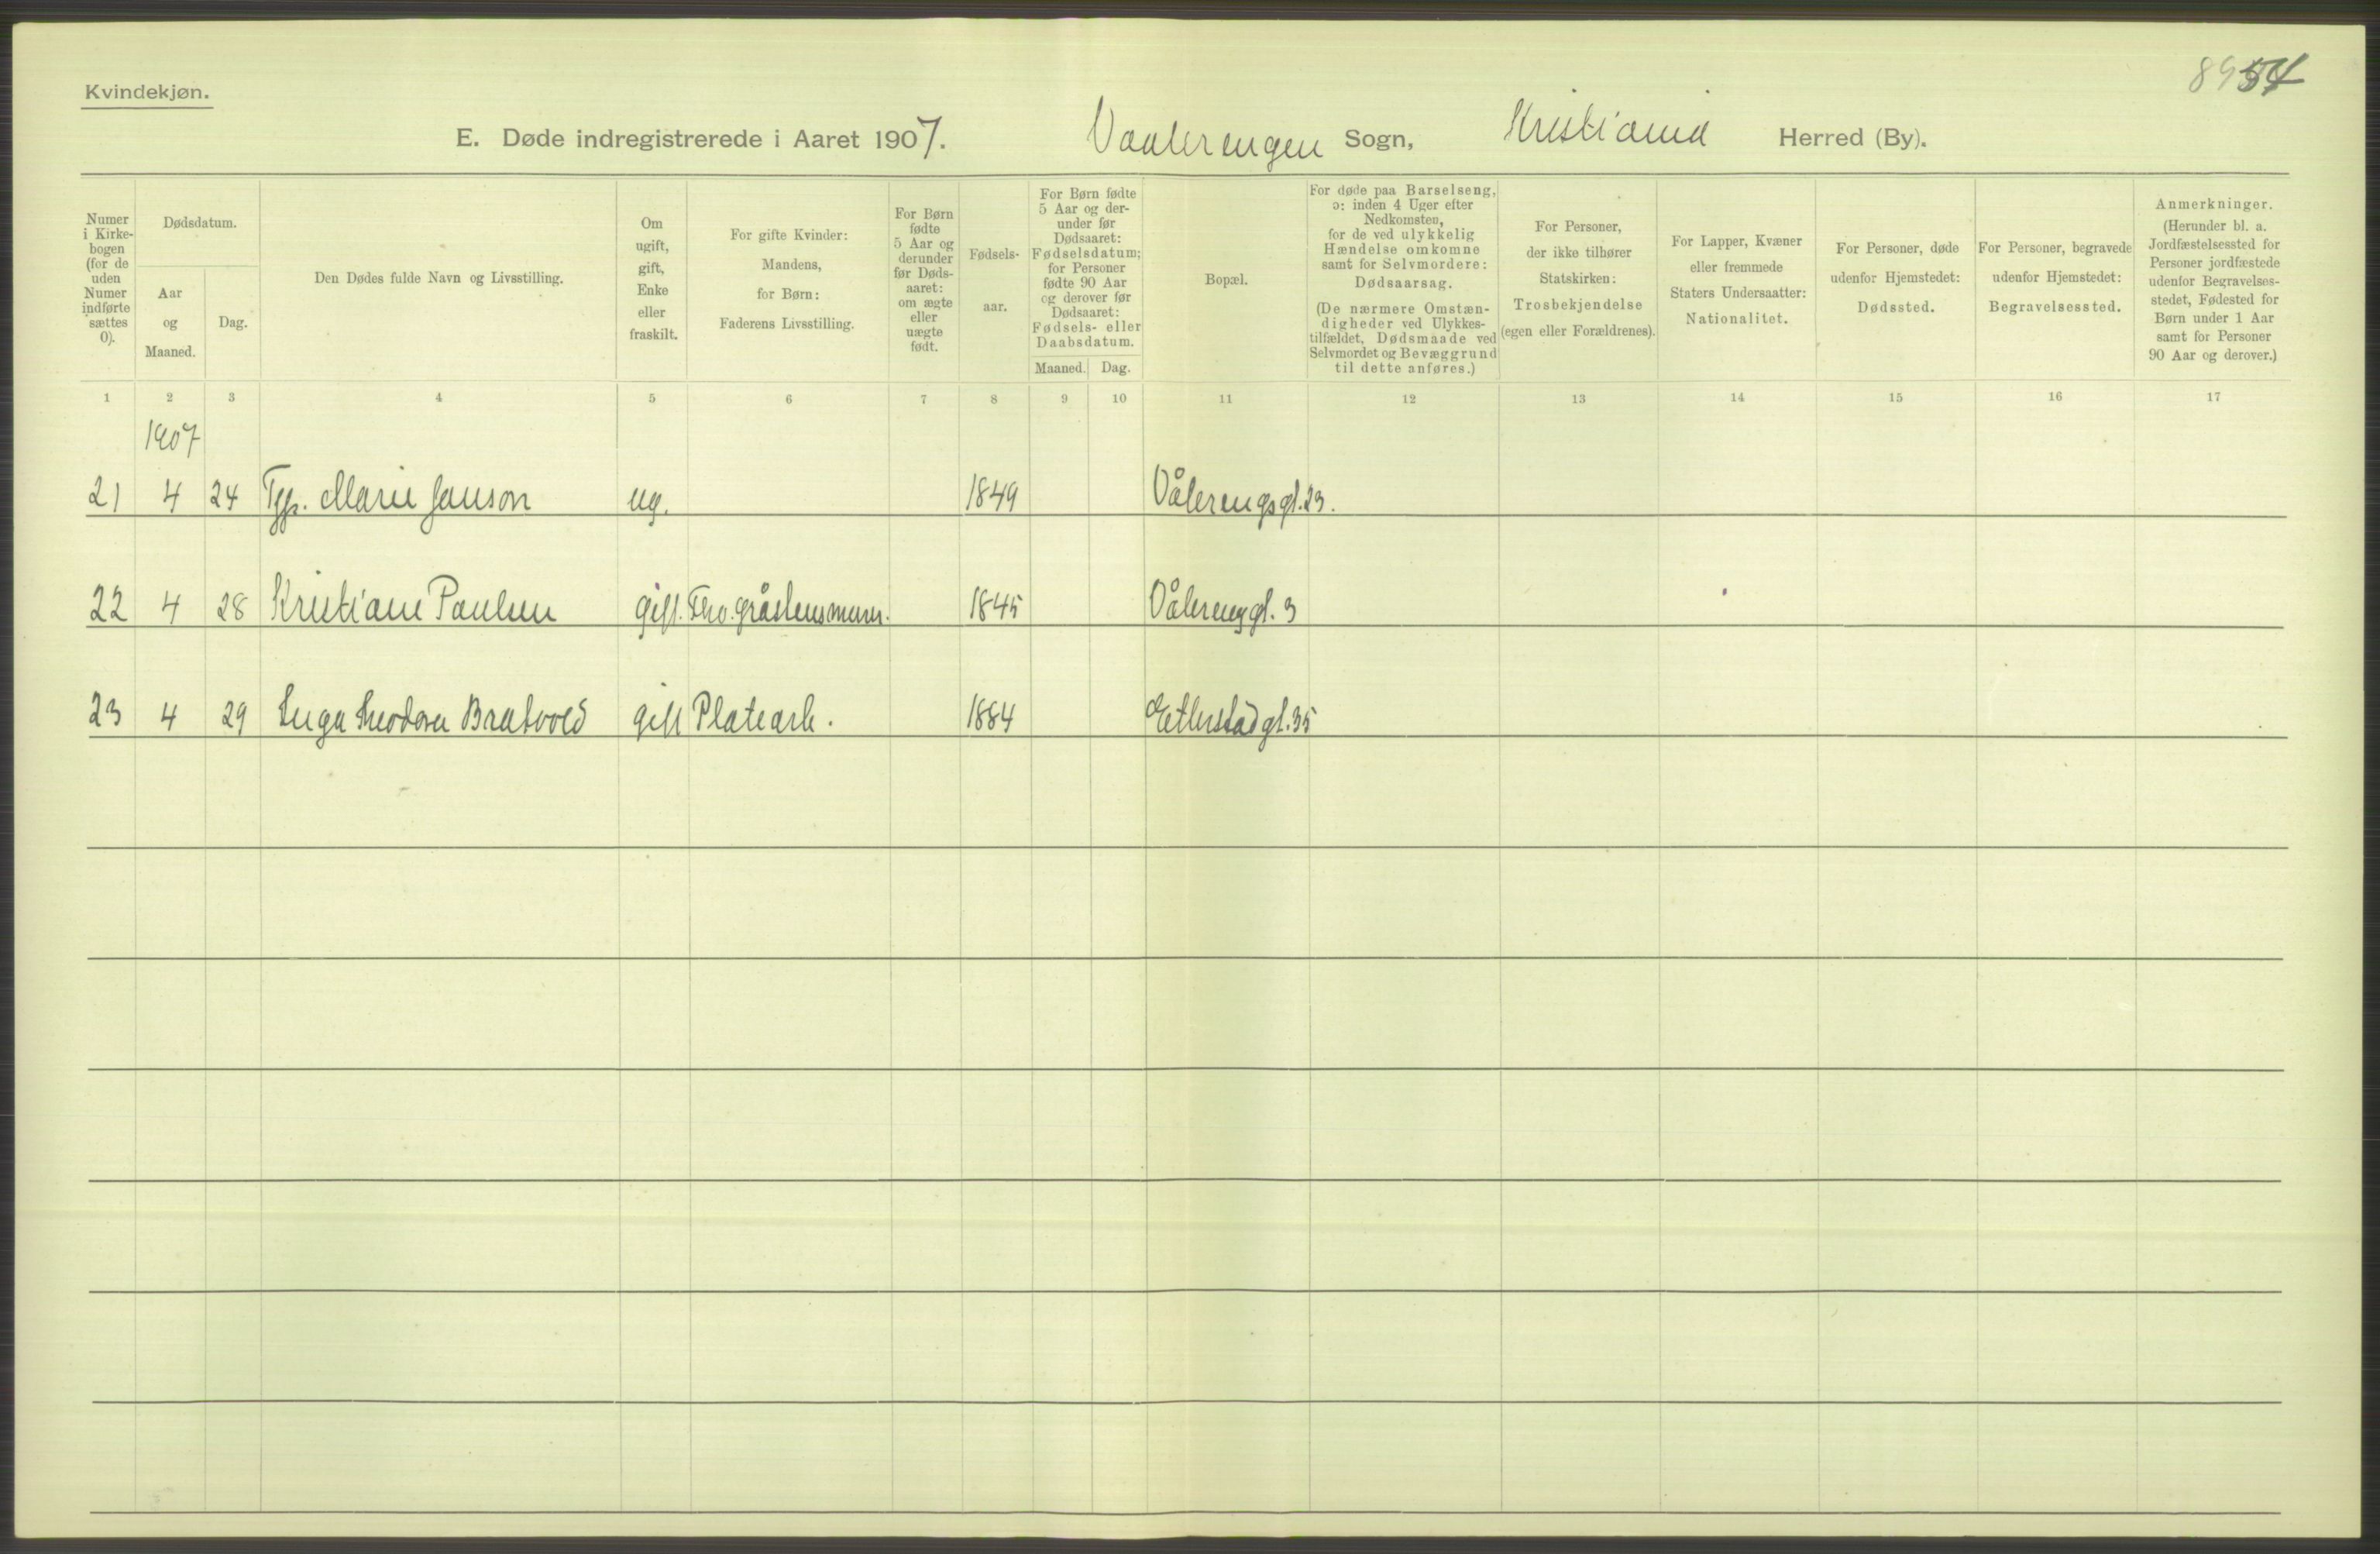 Kvindekjøn.
E. Døde indregistrerede i Aaret 1907. Vaalerengen Sogn, Kristiania Herred (By).
Numer i Kirkebogen (for de uden Numer indførte sættes 0).
Dødsdatum.
Aar og Maaned.
Dag.
Den Dødes fulde Navn og Livsstilling.
Om ugift, gift, Enke eller fraskilt.
For gifte Kvinder: Mandens, for Børn: Faderens Livsstilling.
For Børn fødte 5 Aar og derunder før Dødsaaret: om ægte eller uægte født.
Fødselsaar.
For Børn fødte 5 Aar og derunder før Dødsaaret: Fødselsdatum; for Personer fødte 90 Aar og derover før Dødsaaret: Fødsels- eller Daabsdatum.
Maaned. Dag.
Bopæl.
For døde paa Barselseng, ɔ: inden 4 Uger efter Nedkomsten, for de ved ulykkelig Hændelse omkomne samt for Selvmordere: Dødsaarsag.
(De nærmere Omstændigheder ved Ulykkestilfældet, Dødsmaade ved Selvmordet og Bevæggrund til dette anføres.)
For Personer, der ikke tilhører Statskirken: Trosbekjendelse (egen eller Forældrenes).
For Lapper, Kvæner eller fremmede Staters Undersaatter: Nationalitet.
For Personer, døde udenfor Hjemstedet: Dødssted.
For Personer, begravede udenfor Hjemstedet: Begravelsessted.
Anmerkninger. (Herunder bl. a. Jordfæstelsessted for Personer jordfæstede udenfor Begravelsesstedet, Fødested for Børn under 1 Aar samt for Personer 90 Aar og derover.)
1 2 3 4 5 6 7 8 9 10 11 12 13 14 15 16 17
1907
21 4 24 Tjp. Marie Janson ug. 1849 Vålerengsgt. 23.
22 4 28 Kristiane Paulsen gift. Thv. gråstensmurer. 1845 Vålerenggt. 3
23 4 29 Inga Theodora Bratvold gift Platearb. 1884 Etterstadgt. 35